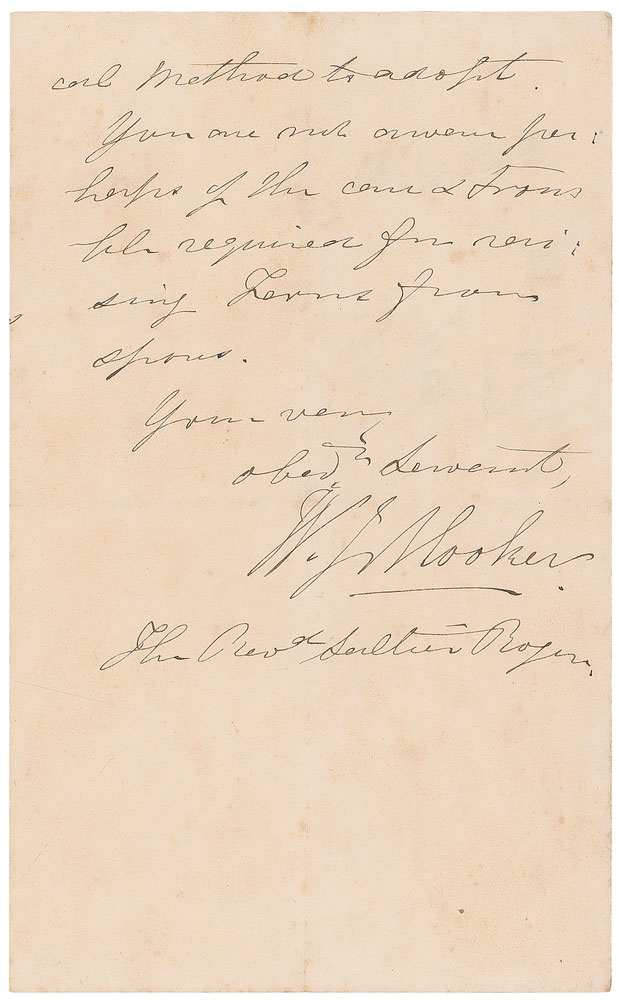 cal Method to adopt.
You are not aware per:
haps of the care & Trou
ble required for rai:
sing Ferns from
spores.
Your very
obed.t Servant,
W. J. Hooker.
The Revd Rogers.